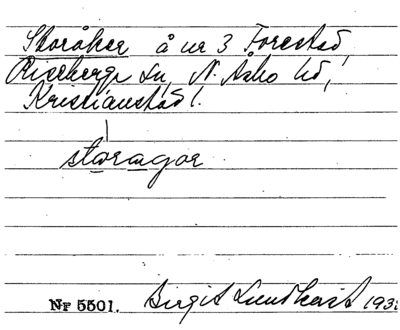 Storåker å nr 3 Forestad
Riseberga sn, N. Åsbo hd,
Kristianstad l.
storagor
Nr 5501. Birgit Lundkvist